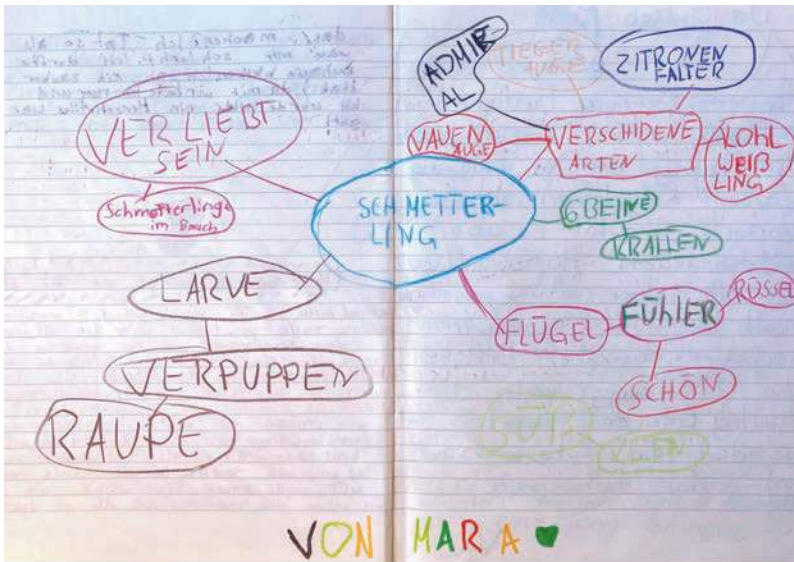 VERLIEBT
SEIN
Schmetterlinge
im Bauch
LARVE
VERPUPPEN
RAUPE
SCHMETTER-
LING
ADMIR-
AL
TIEGER
AUGE
ZITRONEN
FALTER
VAUEN
AUGE
VERSCHIDENE
ARTEN
KOHL
WEIß
LING
6 BEINE
KRALLEN
FLÜGEL
FÜHLER
RÜSSEL
SCHÖN
SÜß
KLEIN
VON MARA